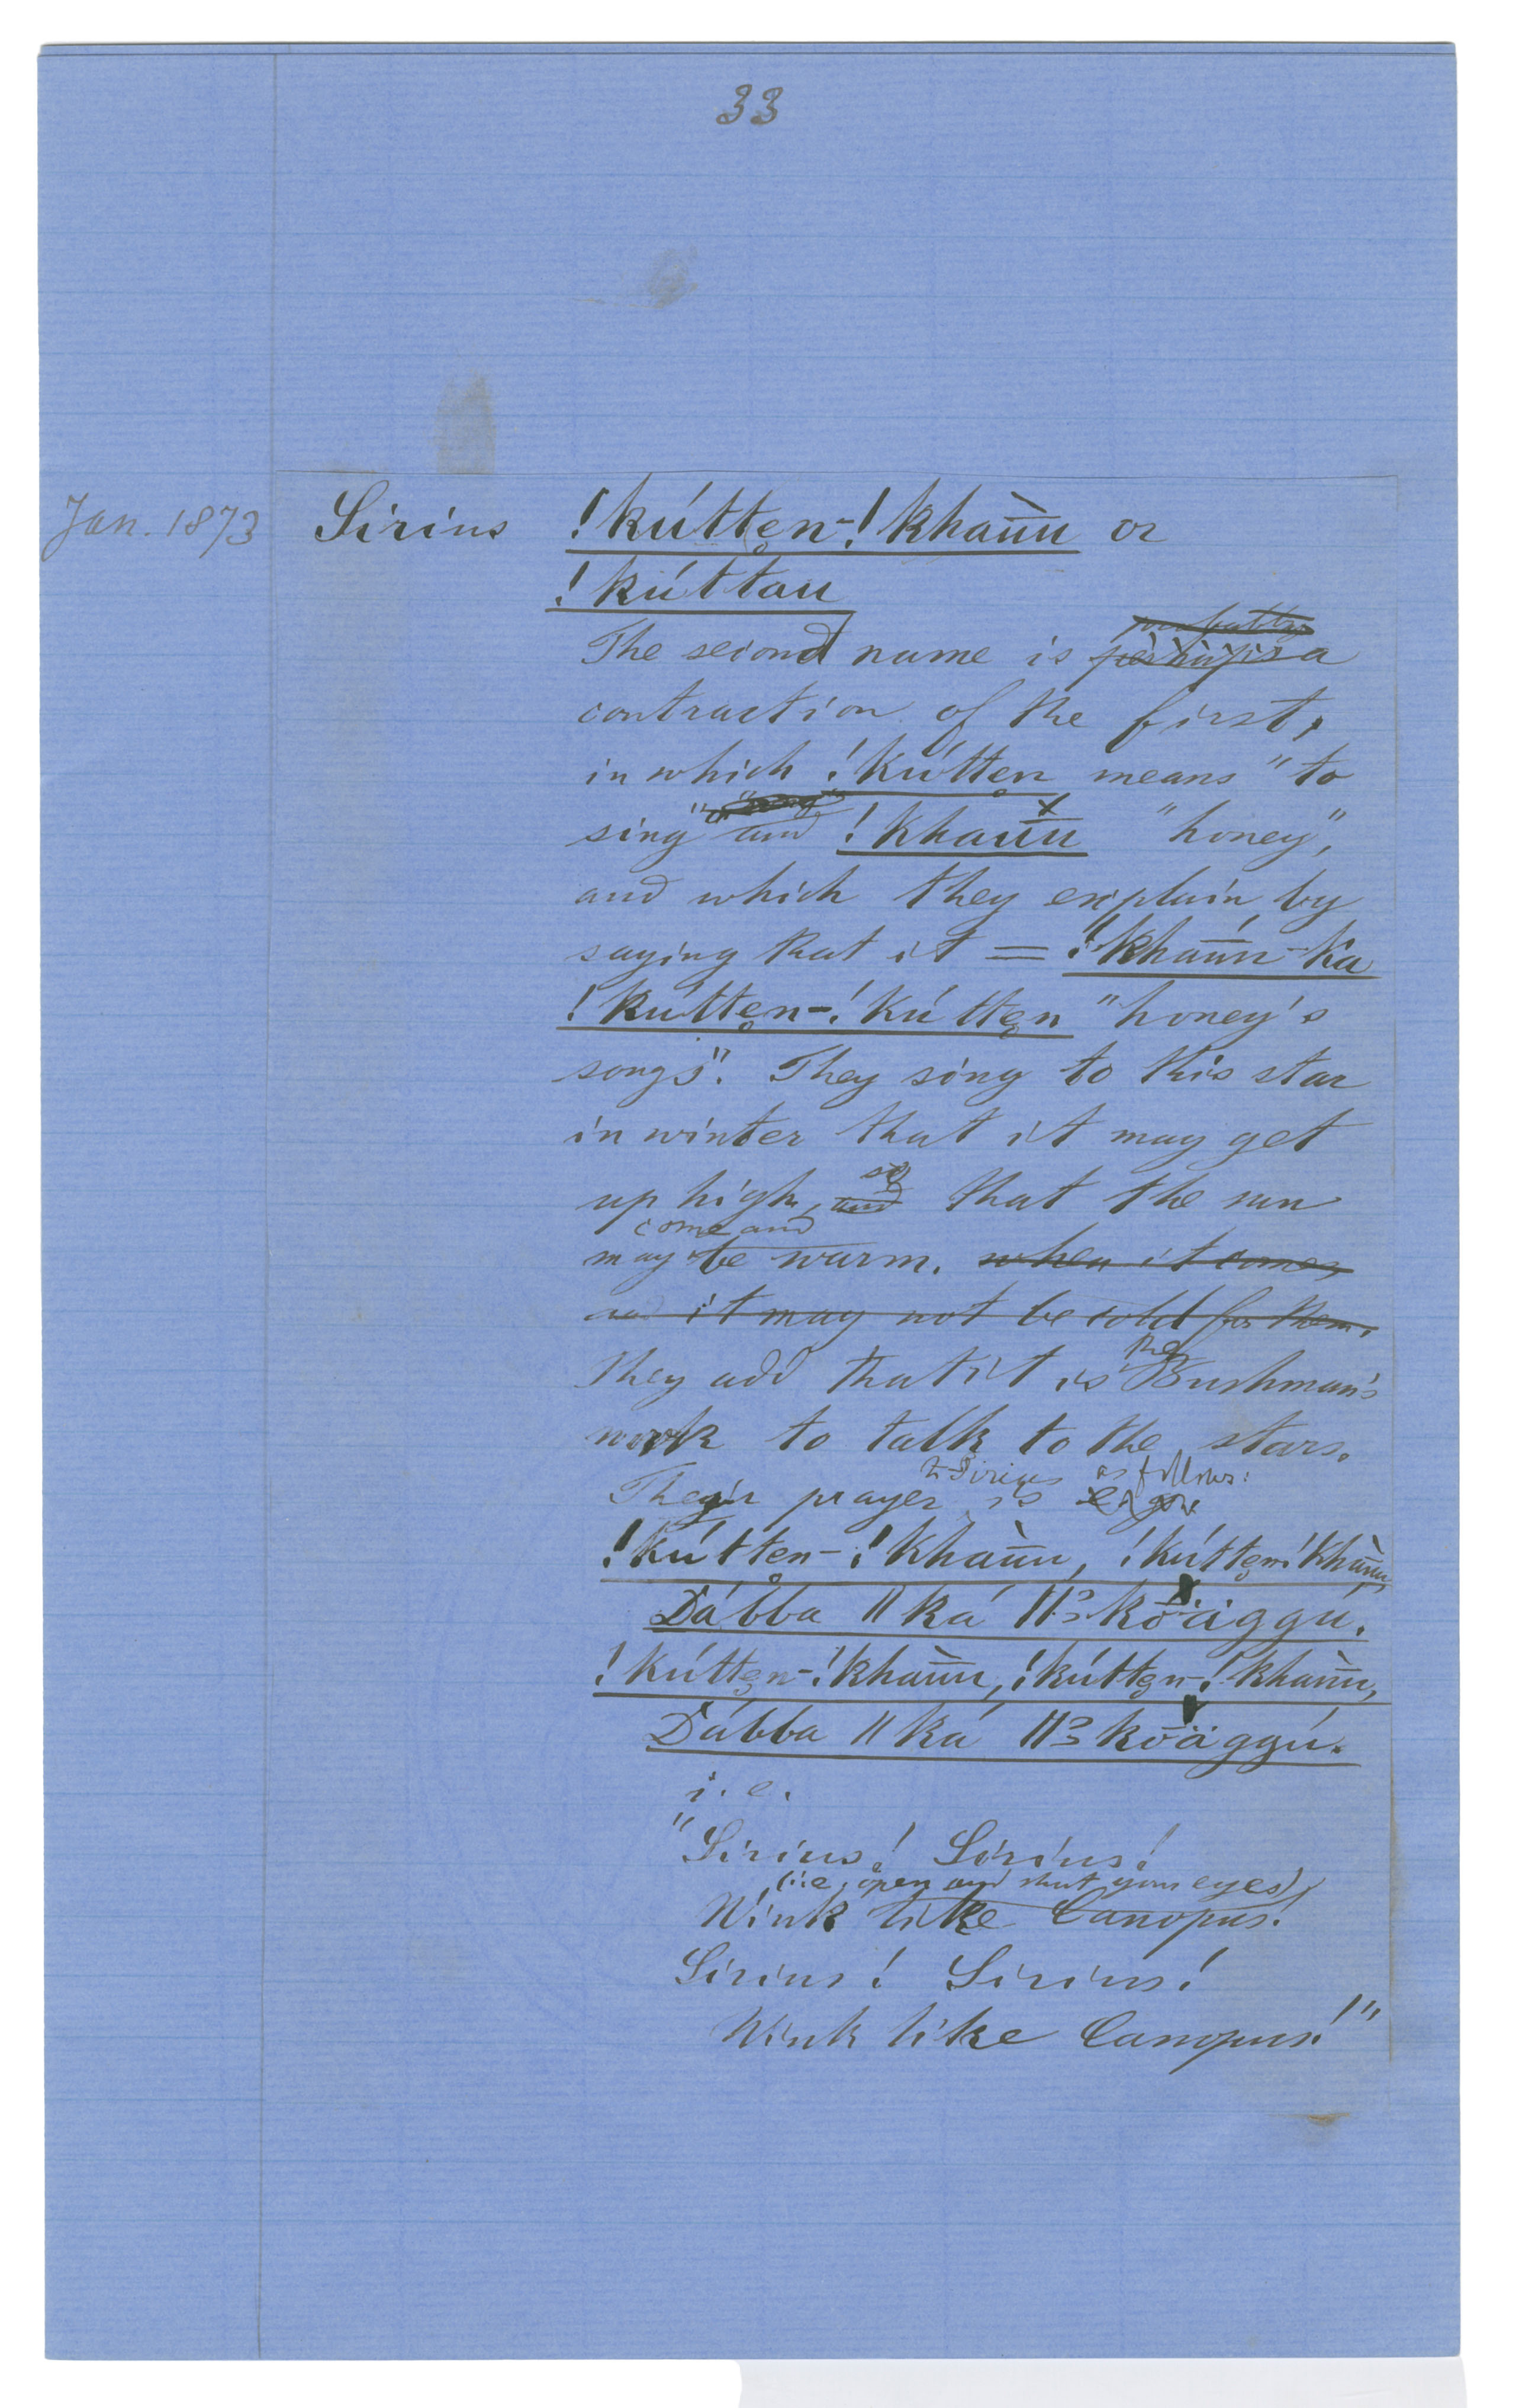 33
Jan. 1873 Sirius !kútten̥-!khā̀ūu or
!kúttau
probably
The second name is perhaps a
contraction of the first,
in which !kútten̥ means "to
sing" and !khā̀ūu "honey",
and which they explain by
saying that it = !khāūu-ka
!kútten̥-!kútten̥ "honey's
songs". They sing to this star
in winter that it may get
so
up high, and that the sun
come and
may be warm. when it comes
it may not be cold for them.
the
They add that it is Bushman's
work to talk to the stars.
to Sirius as follows:
Their prayer is
!kútten̥-!khā̀ūu, !kútten̥-!khā̀ūu,
Dábba ǁká ǁkōäggú.
!kútten̥-!khā̀ūu, !kútten̥-!khā̀ūu,
Dábba ǁká ǁkōäggú.
i.e.
"Sirius! Sirius!
(i.e. open and shut your eyes)
Wink like Canopus!
Sirius! Sirius!
Wink like Canopus!"